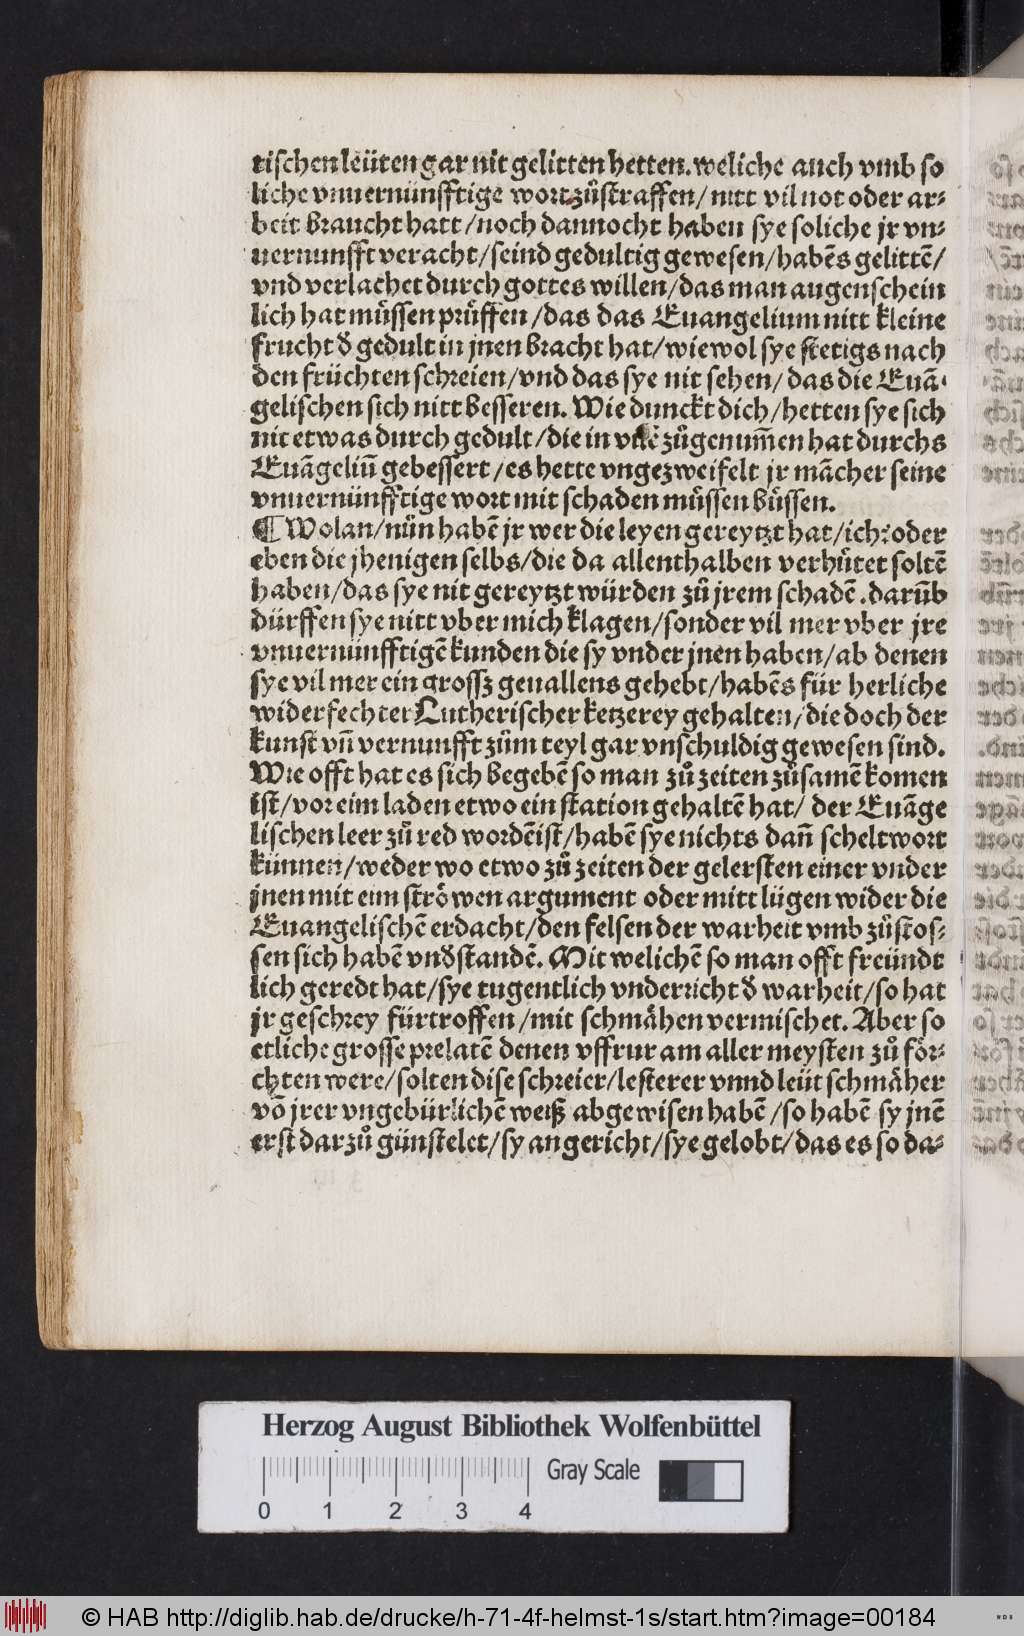 tischen leüten gar nit gelitten hetten. weliche auch vmb so
liche vnuernünfftige wort zůstraffen/ nitt vil not oder ar⸗
beit braucht hatt/noch dannocht haben sye soliche jr vn⸗
uernunfft veracht/seind gedultig gewesen/habēs gelittē/
vnd verlachet durch gottes willen/das man augenschein
lich hat müssen prüffen/das das Euangelium nitt kleine
frucht ð gedult in jnen bracht hat/wiewol sye stetigs nach
den früchten schreien/vnd das sye nit sehen/ das die Euā⸗
gelischen sich nitt besseren. Wie dunckt dich/hetten sye sich
nit etwas durch gedult/die in zůgenum̄en hat durchs
Euāgeliū gebessert/es hette vngezweifelt jr mācher seine
vnuernünfftige wort mit schaden müssen büssen.
¶ Wolan/nůn habē jr wer die leyen gereytzt hat/ich: oder
eben die jhenigen selbs/die da allenthalben verhütet soltē
haben/das sye nit gereytzt würden zů jrem schadē. darūb
dürffen sye nitt vber mich klagen/sonder vil mer vber jre
vnuernünfftigē kunden die sy vnder jnen haben/ab denen
sye vil mer ein grossz geuallens gehebt/habēs für herliche
widerfechter Lutherischer ketzerey gehalten/die doch der
kunst vn̄ vernunfft zům teyl gar vnschuldig gewesen sind.
Wie offt hat es sich begebē so man zů zeiten zůsamē komen
ist/vor eim laden etwo ein station gehaltē hat/ der Euāge
lischen leer zů red wordē ist/habē sye nichts dan̄ scheltwort
künnen/weder wo etwo zů zeiten der gelersten einer vnder
jnen mit eim ströwen argument oder mitt lügen wider die
Euangelischē erdacht/den felsen der warheit vmb zůstos⸗
sen sich habē vnðstandē. Mit welichē so man offt freündt
lich geredt hat/sye tugentlich vnderricht ð warheit/so hat
jr geschrey fürtroffen/mit schmähen vermischet. Aber so
etliche grosse prelatē denen vffrur am aller meysten zů för⸗
chten were/solten dise schreier/lesterer vnnd leüt schmäher
vō jrer vngebürlichē weiß abgewisen habē/so habē sy jnē
erst darzů günstelet/sy angericht/sye gelobt/das es so da⸗
Herzog August Bibliothek Wolfenbüttel
Gray Scale
0 1 2 3 4
© HAB http://diglib.hab.de/drucke/h-71-4f-helmst-1s/start.htm?image=00184